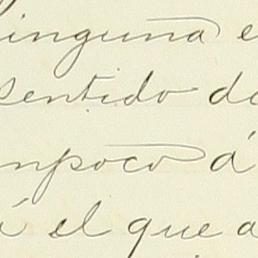 ninguna e
sentido de
mpoco á
á el que a